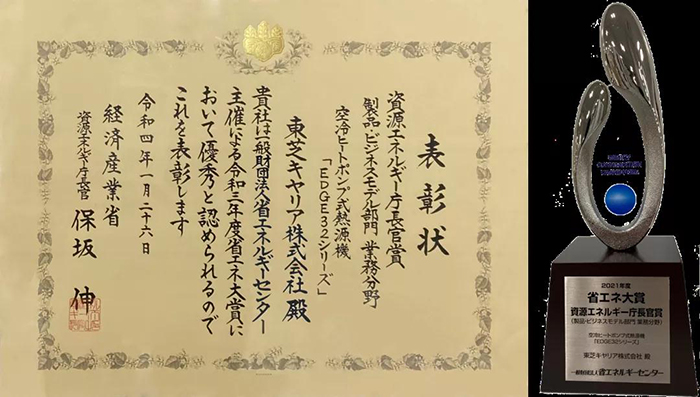 表彰状
資源エネルギー庁長官賞
製品・ビジネスモデル部門 業務分野
空冷ヒートポンプ式熱源機
「EDGE32シリーズ」
東芝キヤリア株式会社 殿
貴社は一般財団法人省エネルギーセンター
主催による令和三年度省エネ大賞に
おいて優秀と認められるので
これを表彰します
令和四年一月二十六日
経済産業省
資源エネルギー庁長官 保坂 伸
2021年度
省エネ大賞
資源エネルギー庁長官賞
(製品・ビジネスモデル部門 業務分野)
空冷ヒートポンプ式熱源機
「EDGE32シリーズ」
東芝キヤリア株式会社 殿
一般財団法人省エネルギーセンター